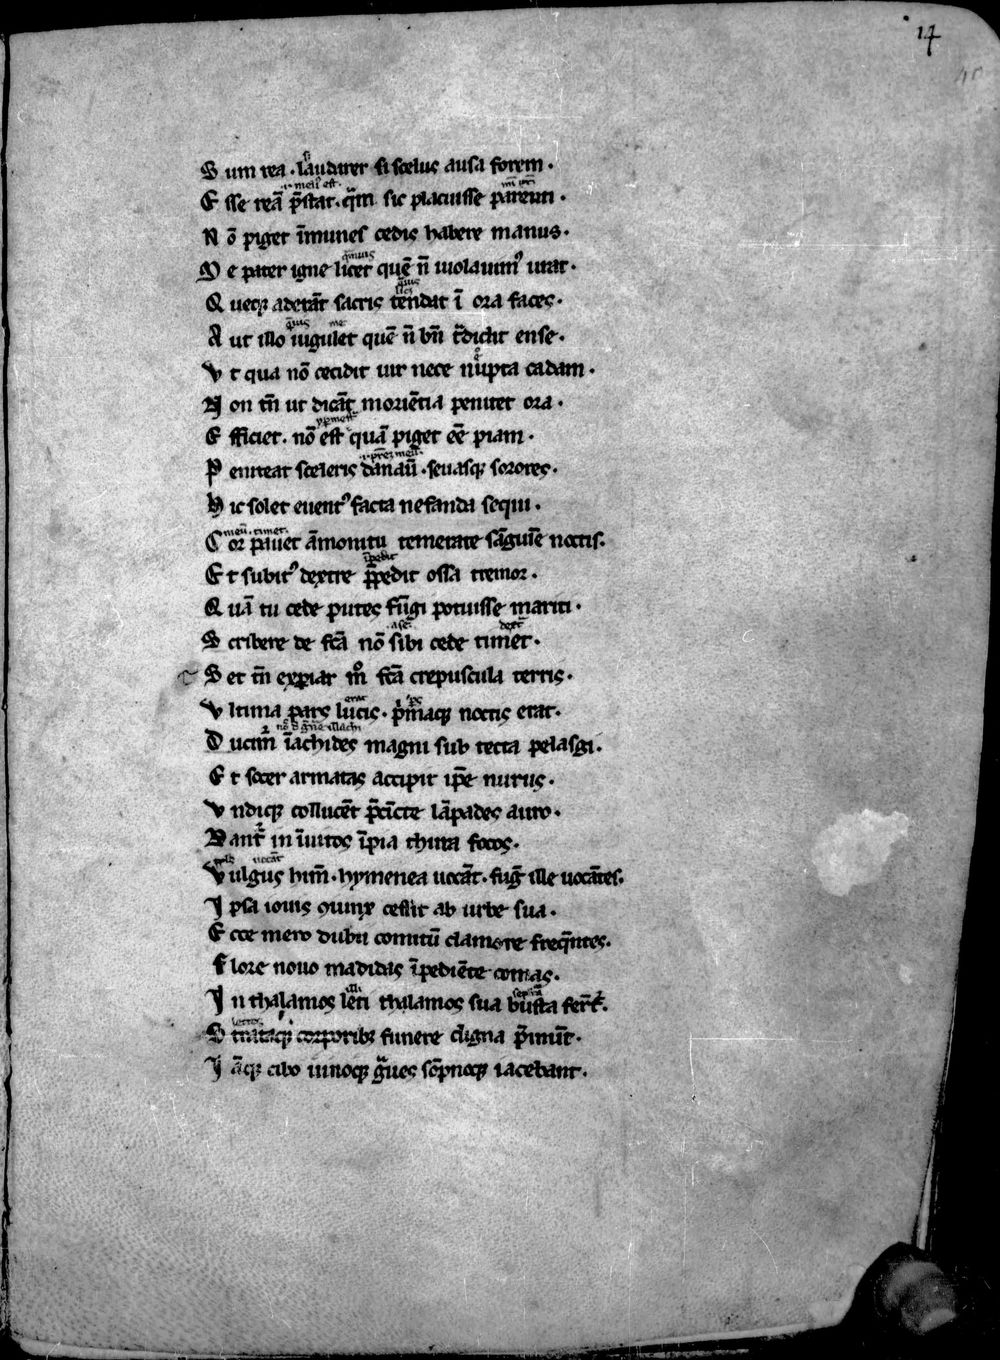 17
S um rea · laudarer si scelus ausa forem ·
.i. meli9 est.
E sse reā p̄stat · q̄m sic placuisse parenti ·
N ō piget īmunes cedis habere manus ·
q̄muis
M e pater igne licet quē n̄ uiolauim9 urat ·
Q ueq3 aderāt sacris tendat ī ora faces ·
q̄uis me
A ut illo iugulet quē n̄ bn̄ t̄didit ense ·
V t qua nō cecidit uir nece nupta cadam ·
N on tn̄ ut dicāt moriētia penitet ora ·
E fficiet · nō est quā piget eē piam ·
P eniteat sceleris danaū · seuasq3 sorores ·
H ic solet euent9 facta nefanda sequi ·
meū · timet ·
C or pauet āmonitu temerate sāguīe noctis ·
īpedit
E t subit9 dextre p̄pedit ossa tremor ·
Q uā tu cede putes fūgi potuisse mariti ·
S cribere de fc̄a nō sibi cede timet ·
S et tn̄ expiar m̊ fc̄a crepuscula terris ·
erat
V ltima pars lucis · p̍maq3 noctis erat ·
D ucim2 īachides magni sub tecta pelasgi ·
E t socer armatas accipit ip̄e nurus ·
V ndiq3 collucēt p̄cīcte lāpades auro ·
D ant2 in īuitos īpia thura focos ·
uocāt
V ulgus himē · hymenea uocāt · fuḡ ille uocātes ·
I psa iouis 9iunx cessit ab urbe sua ·
E cce mero dubii comitū clamore freq̄ntes ·
F lore nouo madidas īpediēte comas ·
illi
I n thalamos leti thalamos sua busta fer̄t ·
S trataq3 corporib3 funere digna p̄mūt ·
I āq3 cibo uinoq3 g̍ues sōpnoq3 iacebant ·